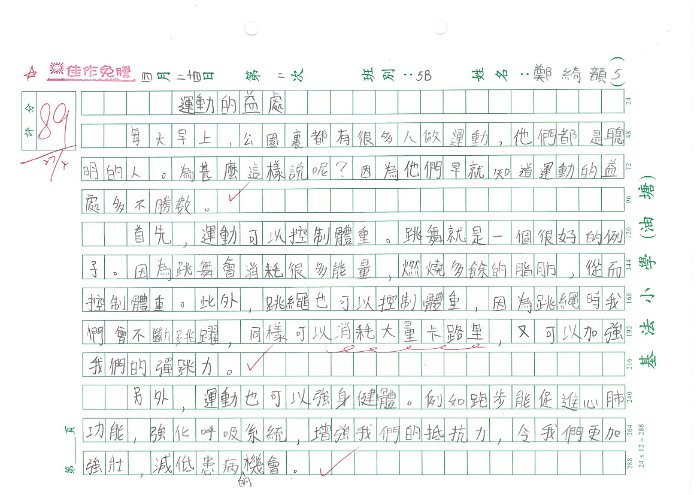 ☆ 佳作免謄 四月二十日 第二次 班別：5B 姓名：鄭綺韻(5)
評分 89
運動的益處
每天早上，公園裏都有很多人做運動，他們都是聰
明的人。為甚麼這樣說呢？因為他們早就知道運動的益
處多不勝數。
首先，運動可以控制體重。跳舞就是一個很好的例
子。因為跳舞會消耗很多能量，燃燒多餘的脂肪，從而
控制體重。此外，跳繩也可以控制體重，因為跳繩時我
們會不斷跳躍，同樣可以消耗大量卡路里，又可以加強
我們的彈跳力。
另外，運動也可以強身健體。例如跑步能促進心肺
功能，強化呼吸系統，增強我們的抵抗力，令我們更加
強壯，減低患病的機會。
第 頁
24
48
72
96
120
144
168
192
216
240
264
288
24 x 12 = 288
基法小學(油塘)